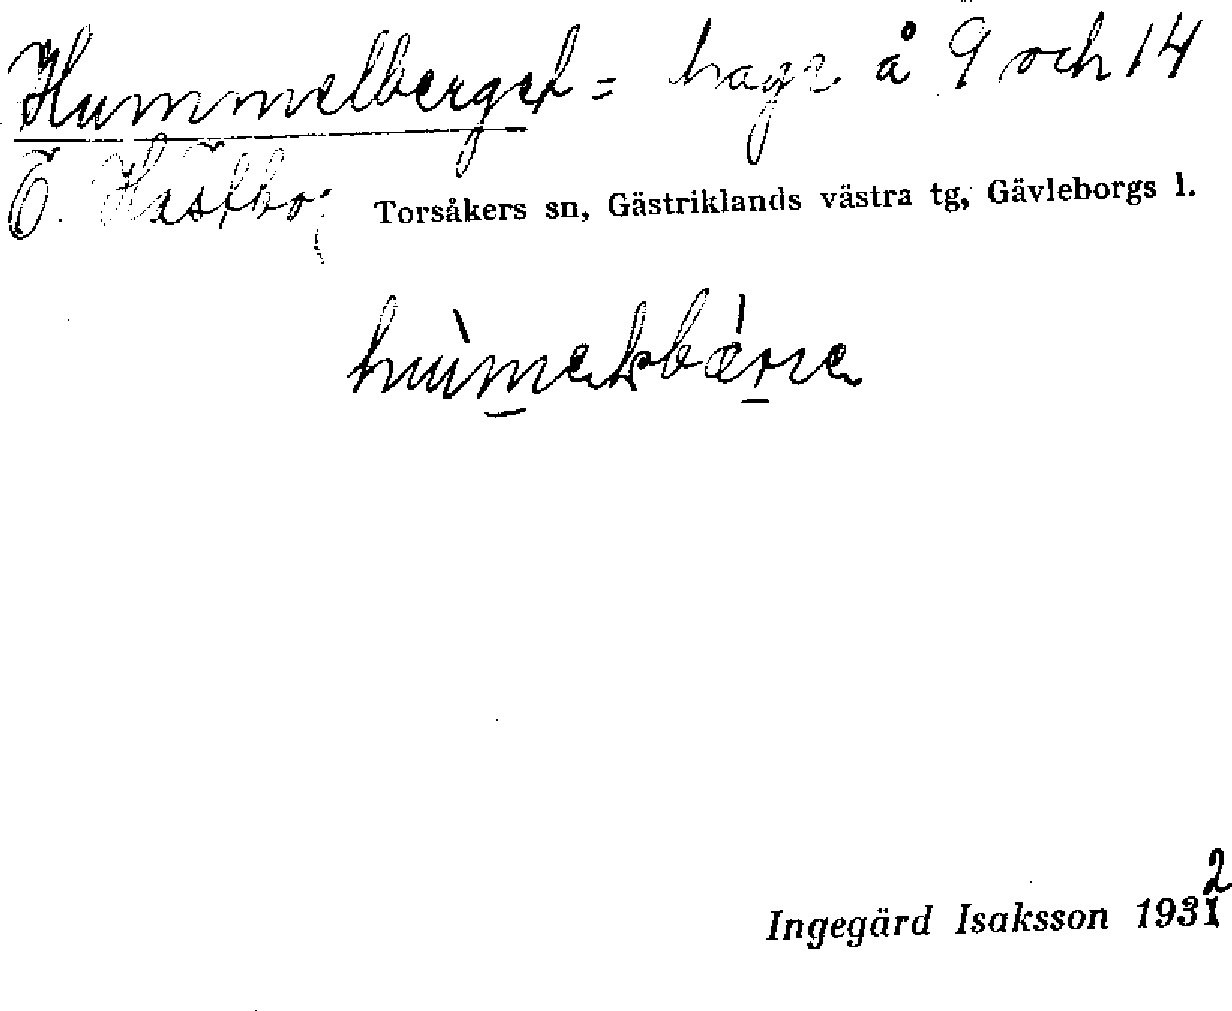 Hummelberget = hage å 9 och 14
Ö. Hästbo, Torsåkers sn, Gästriklands västra tg, Gävleborgs l.
Ingegärd Isaksson 1932